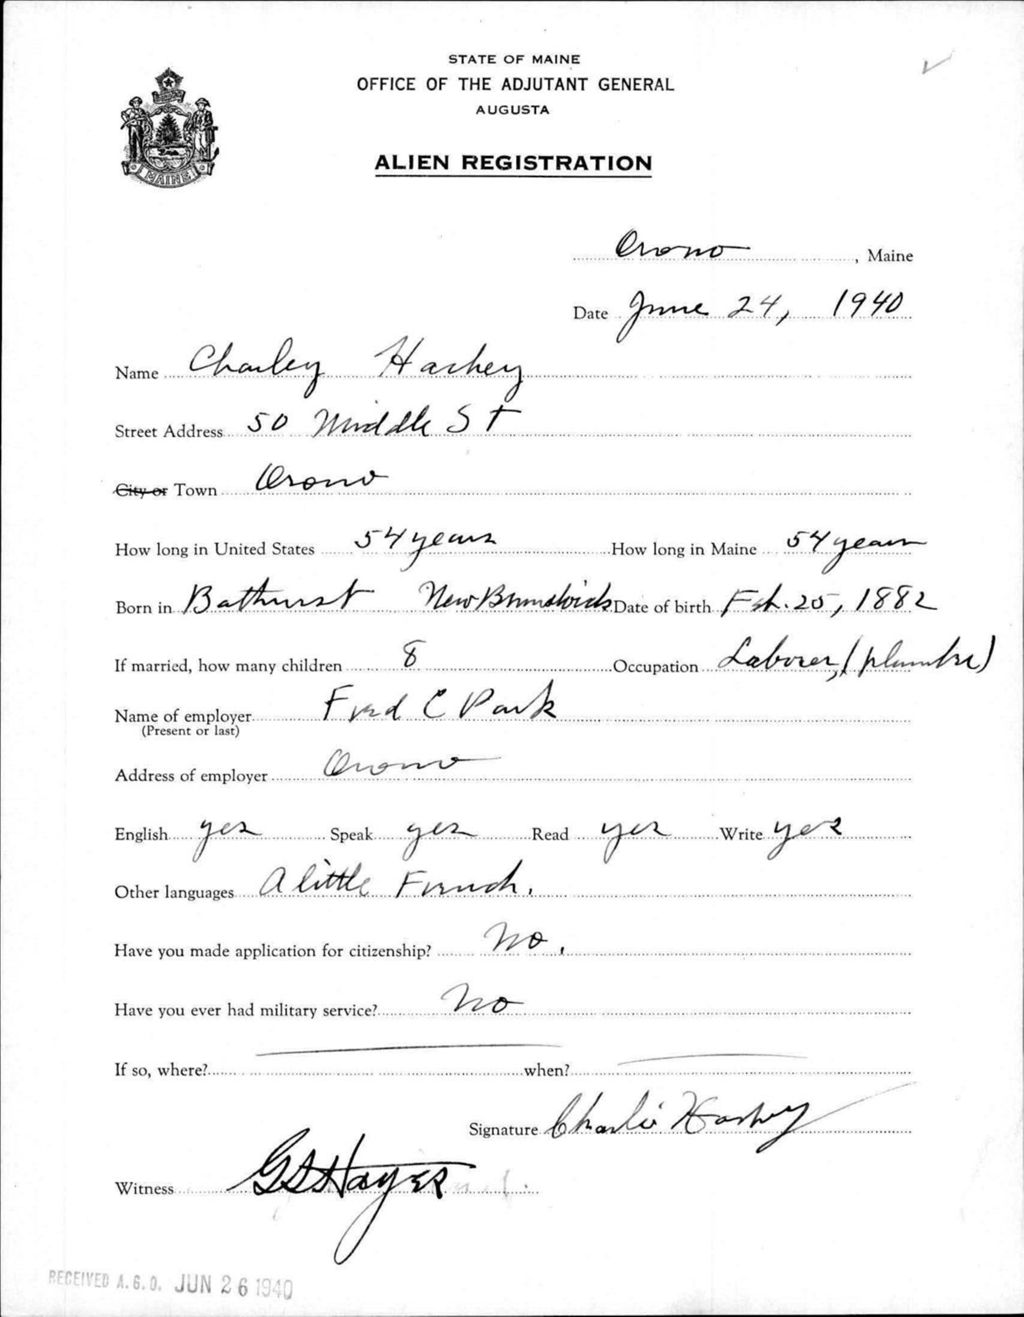 STATE OF MAINE
OFFICE OF THE ADJUTANT GENERAL
AUGUSTA
ALIEN REGISTRATION
MAINE
Orono, Maine
Date June 24, 1940
Name Charley Hachey
Street Address 50 Middle St
City or Town Orono
How long in United States 54 years How long in Maine 54 years
Born in Bathurst New Brunswick Date of birth Feb. 25, 1882
If married, how many children 8 Occupation Laborer, (plumber)
Name of employer Fred C Park
(Present or last)
Address of employer Orono
English yes Speak yes Read yes Write yes
Other languages A little French.
Have you made application for citizenship? No.
Have you ever had military service? No
If so, where? when?
Signature Charlie Hachey
Witness G S Hayes
RECEIVED A.G.O. JUN 26 1940